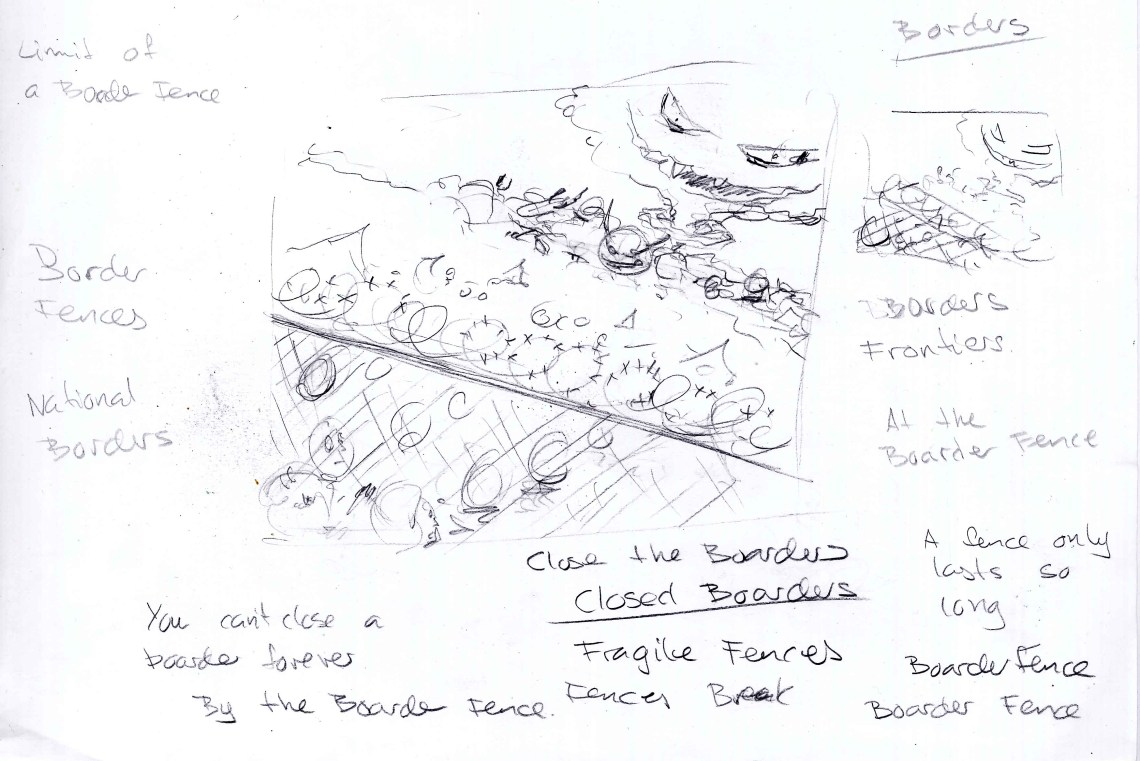 Borders
Limit of
a Boarde Fence
Border
Fences
National
Borders
Borders
Frontiers
At the
Boarder Fence
A fence only
lasts so
long
Boarder Fence
Boarder Fence
Close the Boarders
Closed Boarders
Fragile Fences
Fences Break
You can't close a
boarder forever
By the Boarder Fence.